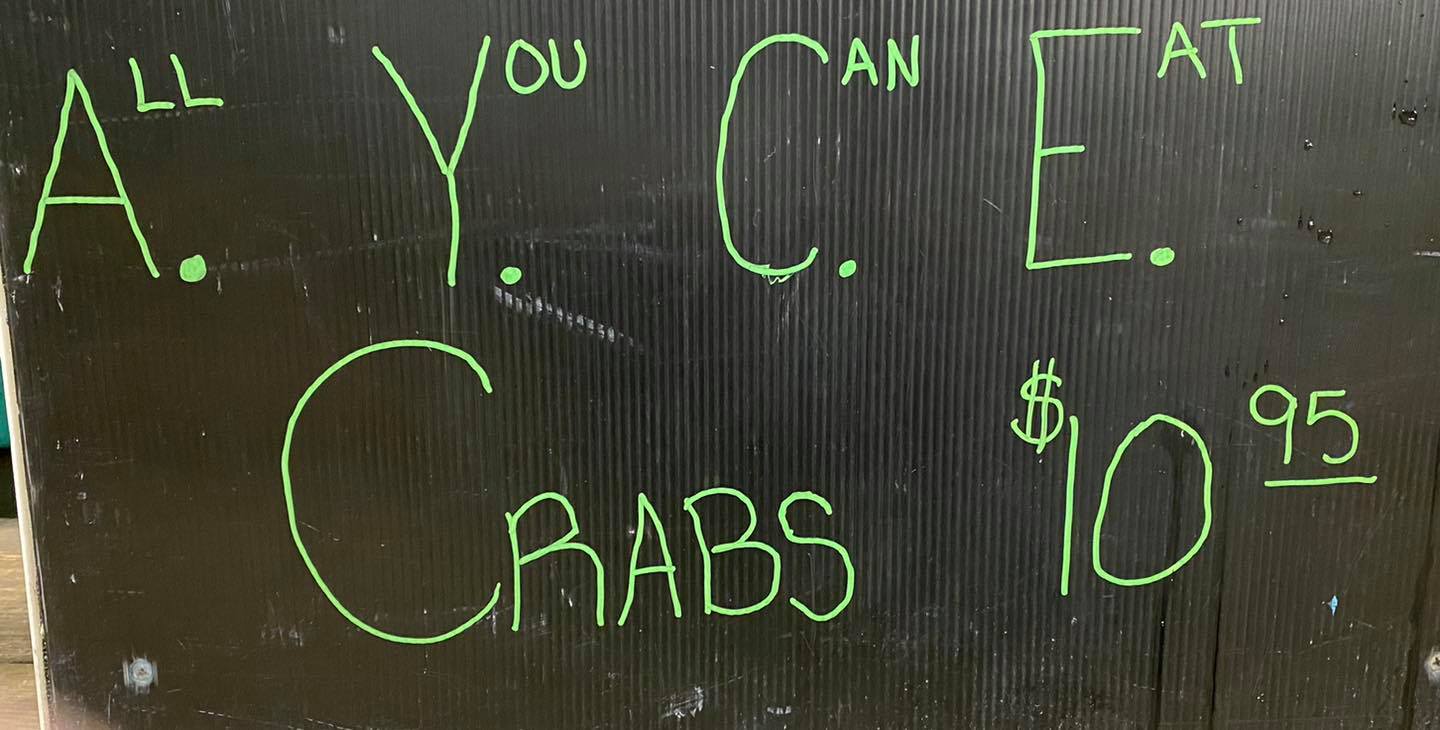 ALL. YOU. CAN. EAT.
CRABS $10 95